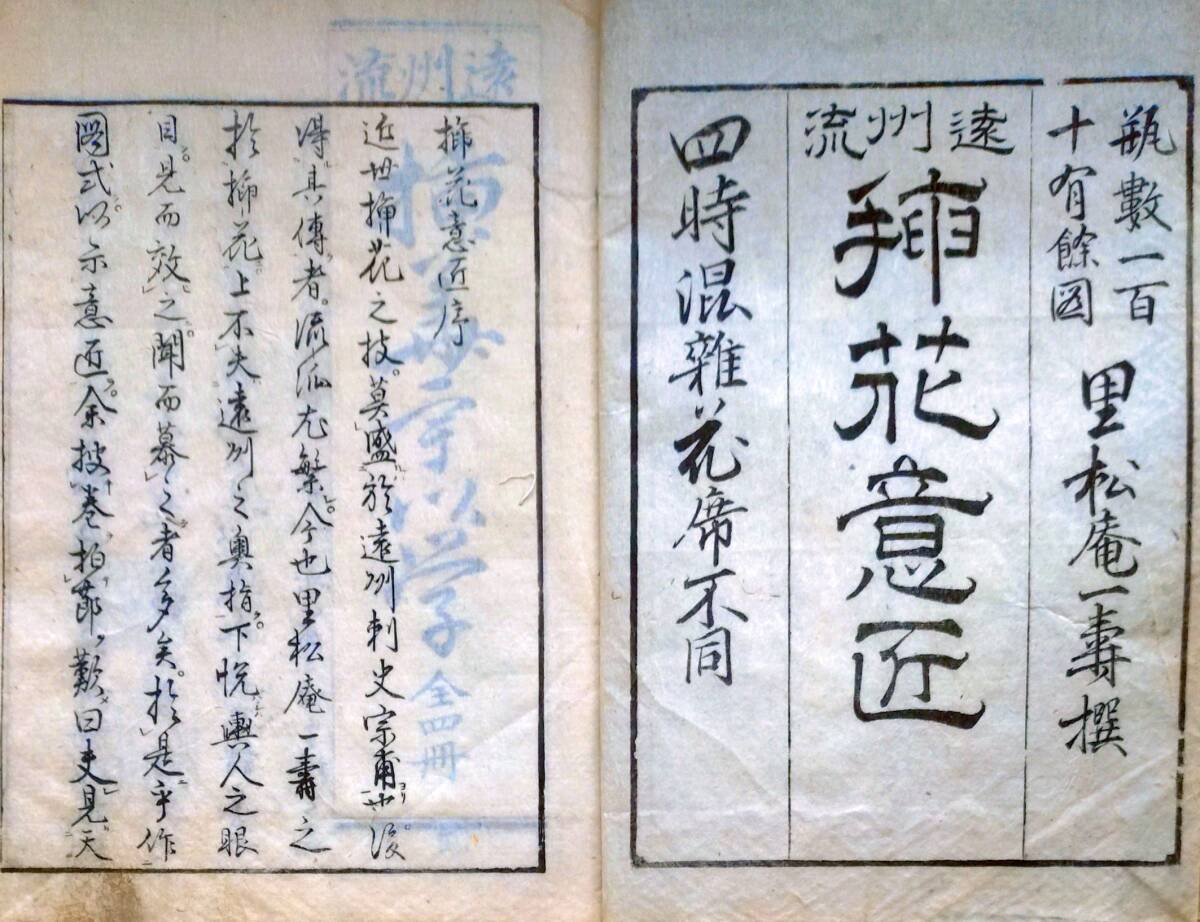 瓶數一百
十有餘圖
里松庵一壽撰
遠州流
挿花意匠
四時混雜花席不同
挿花意匠序
近世挿花之技莫盛於遠州刺史宗甫也後
得其傳者流派尤繁今也里松庵一壽之
於挿花上不失遠州之奥指下悦輿人之眼
目見而效之聞而慕之者多矣於是乎作
圖式以示意匠余披巻拍節歎曰夫見天
遠州流
全四冊